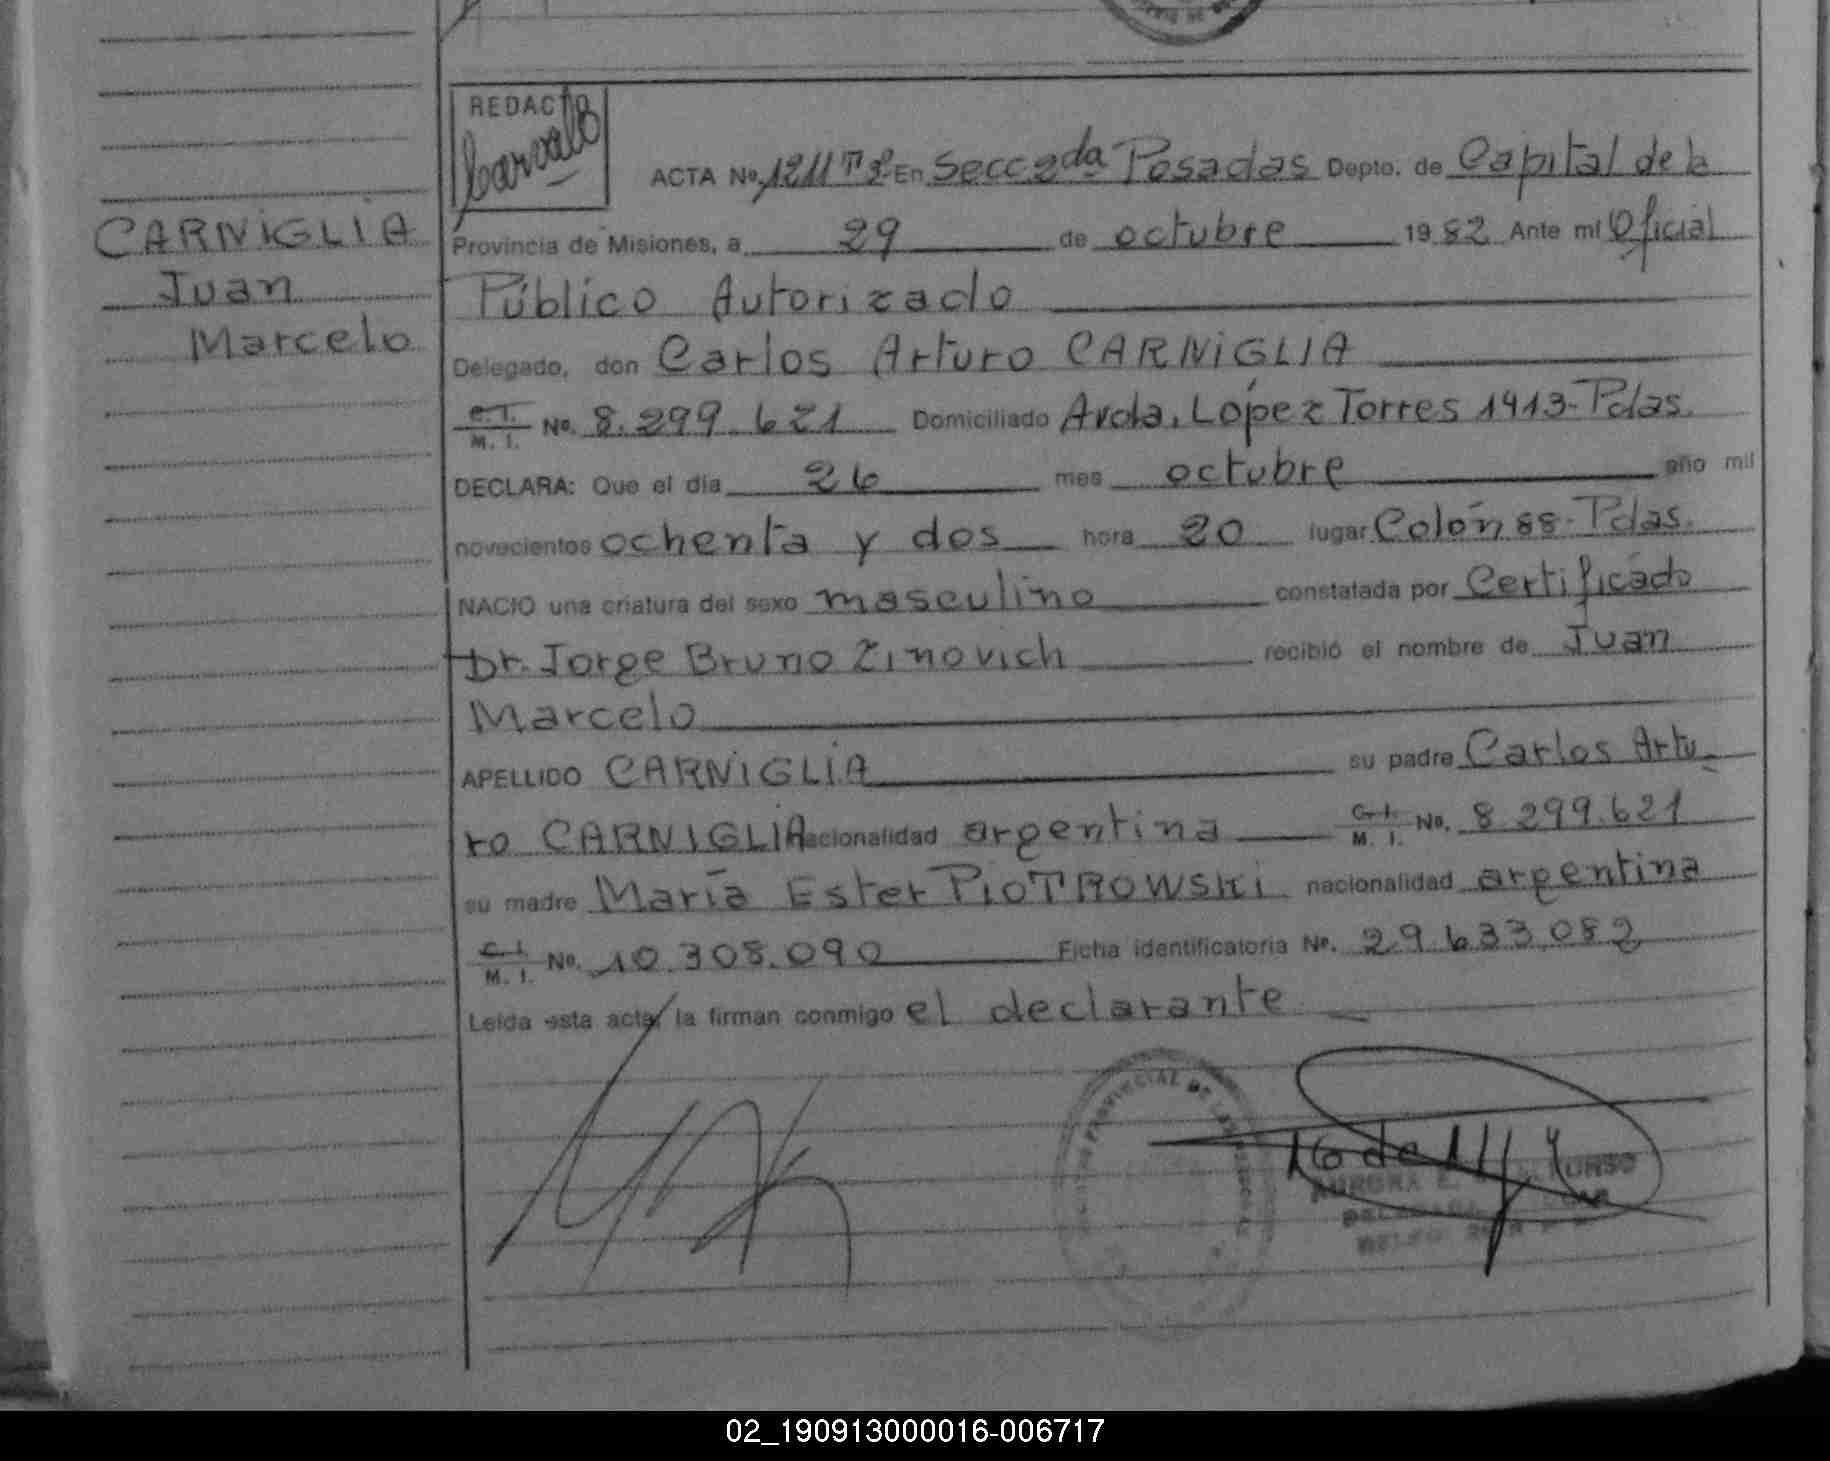 REDACTO
Carvallo
ACTA No. 1211 Tº 3º En Secc 2da Posadas Depto. de Capital de la
CARNiGLiA
Juan
Marcelo
Provincia de Misiones, a 29 de octubre 1982 Ante mí Oficial
Público Autorizado
Delegado, don Carlos Arturo CARNiGLIA
C.I. M. I. No. 8.299.621 Domiciliado Avda. López Torres 1913-Pdas.
DECLARA: Que el día 26 mes octubre año mil
novecientos ochenta y dos hora 20 lugar Colón 88-Pdas.
NACIO una criatura del sexo masculino constatada por Certificado
Dr. Jorge Bruno Zinovich recibió el nombre de Juan
Marcelo
APELLIDO CARNiGLiA su padre Carlos Artu-
ro CARNIGLIA nacionalidad argentina C.I. M. I. No. 8.299.621
su madre María Ester PiOTROWSKi nacionalidad argentina
C.I. M. I. No. 10.308.090 Ficha identificatoria No. 29.633.082
Leída esta acta, la firman conmigo el declarante
PROVINCIAL DE LAS
AURORA E.
02_190913000016-006717